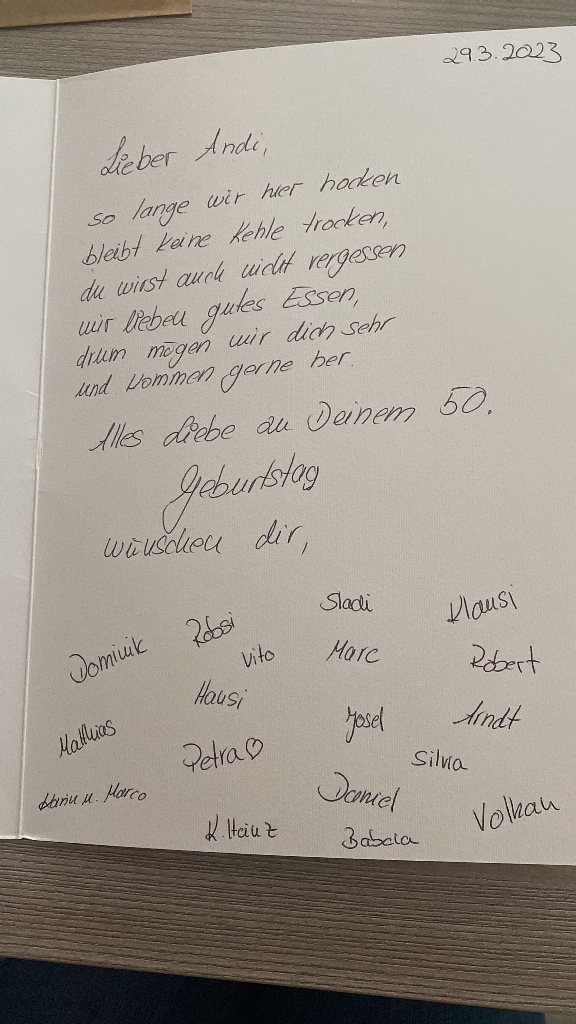 29.3.2023
Lieber Andi,
so lange wir hier hocken
bleibt keine Kehle trocken,
du wirst auch nicht vergessen
wir lieben gutes Essen,
drum mögen wir dich sehr
und kommen gerne her.
Alles Liebe zu Deinem 50.
Geburtstag
wünschen dir,
Sladi Klausi
Dominik Robsi Vito Marc Robert
Hausi
Mathias Josef Arndt
Petra♡ Silvia
u. Marco Daniel Volkan
K. Heinz